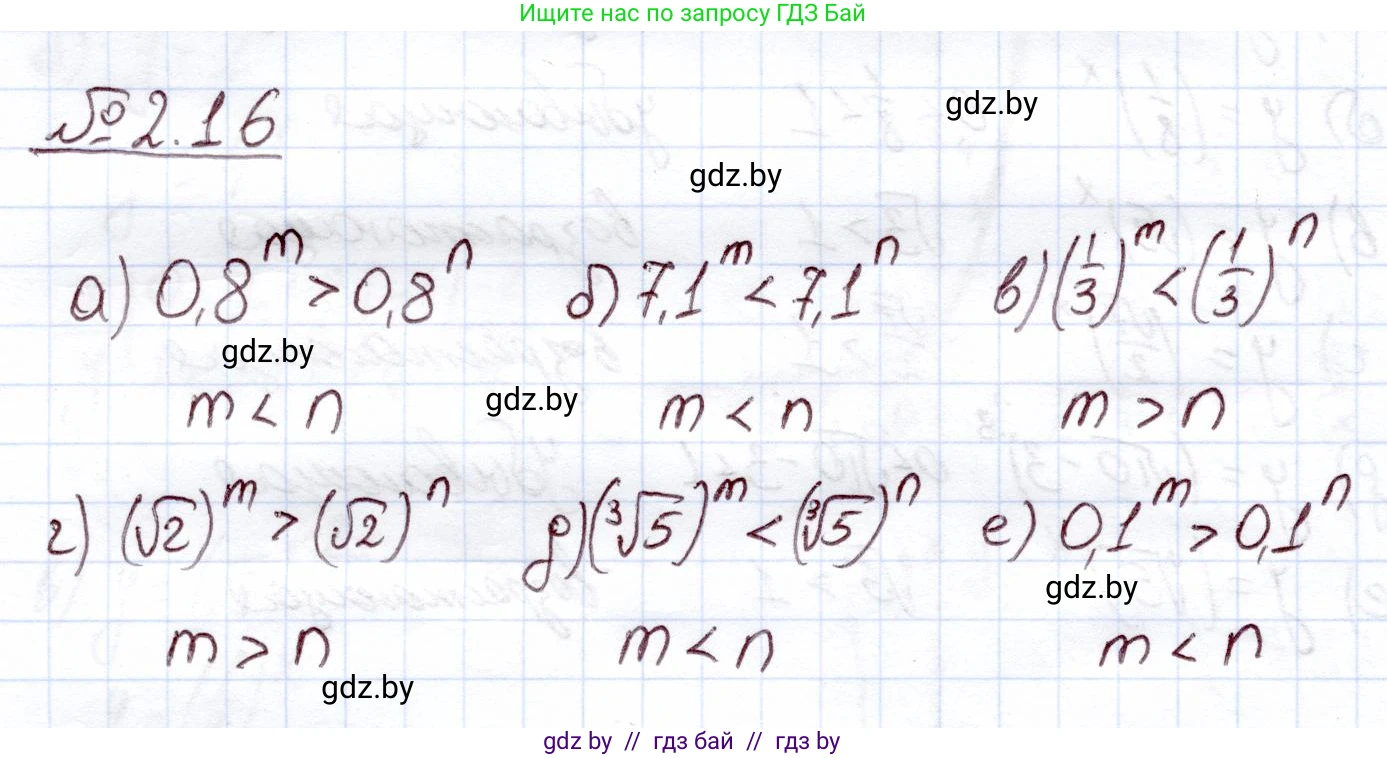 Ищите нас по запросу ГДЗ Бай
№2.16
gdz.by
gdz.by
а) 0,8^m > 0,8^n б) 7,1^m < 7,1^n в) (1/3)^m < (1/3)^n
gdz.by
m < n m < n m > n
gdz.by
г) (√2)^m > (√2)^n д) (∛5)^m < (∛5)^n е) 0,1^m > 0,1^n
gdz.by
m > n m < n m < n
gdz.by
gdz by // гдз бай // гдз by